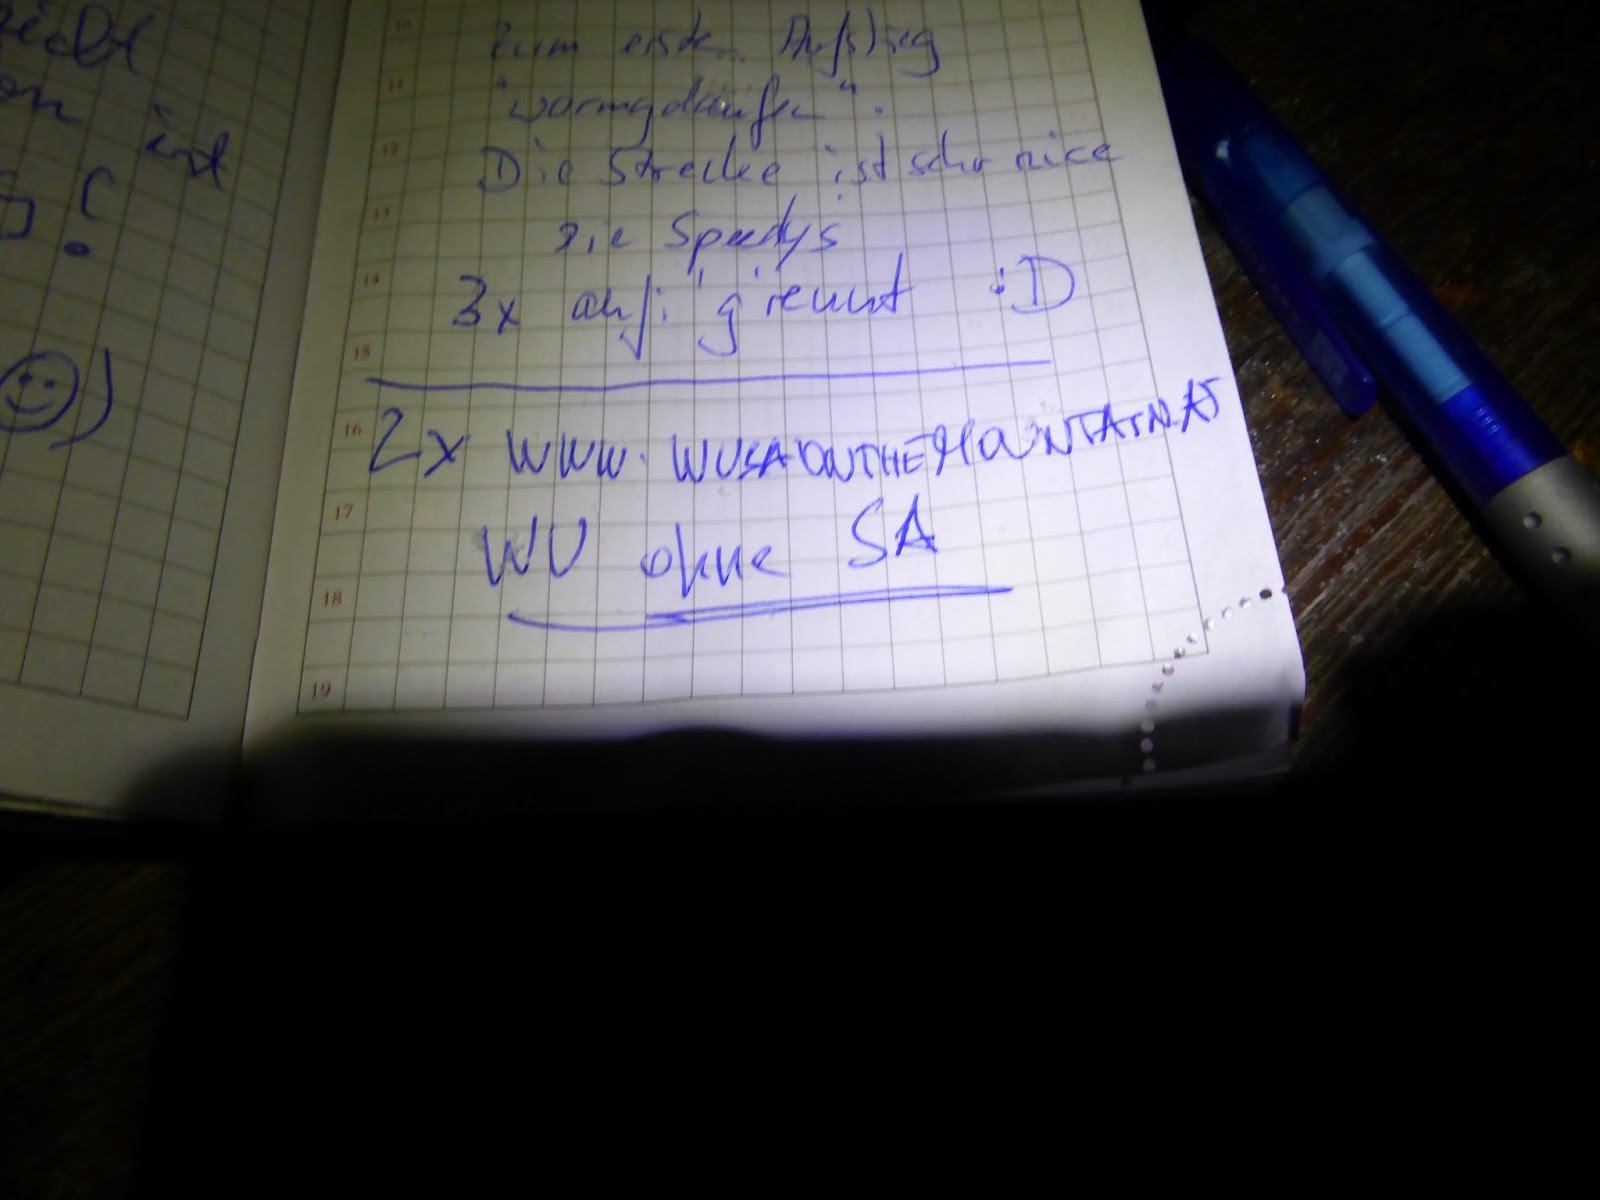 icht
on ist
?
10
zum ersten Aufstieg
11
"warmgelaufen".
12
Die Strecke ist sehr nice
13
die Speedys
14
3x aufi g'rennt :D
15
16
2x WWW.WUSAONTHEMOUNTAIN.AT
17
WU ohne SA
18
19